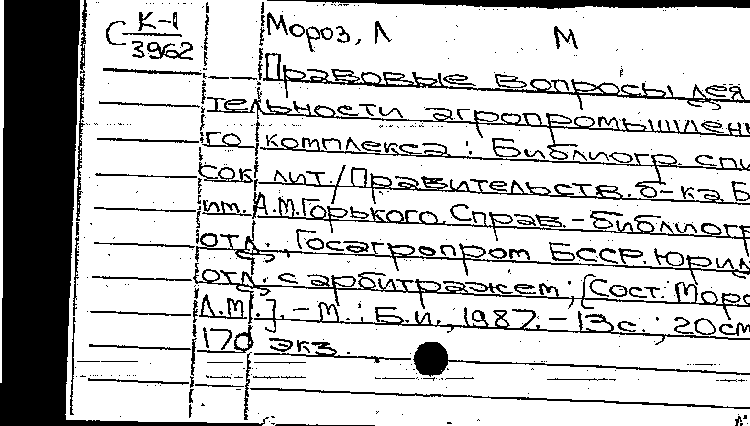 С К-1 Мороз, Л М
3962
Правовые вопросы дея
тельности агропромышленн
го комплекса : Библиогр. спи
сок лит./Правительств. б-ка Б
им. А.М.Горького. Справ.-библиогр
отд., Госагропром БССР. Юрид
отд. с арбитражем; [Сост. Моро
Л.М.]. - М. : Б.и., 1987. - 13с. ; 20см
170 экз.